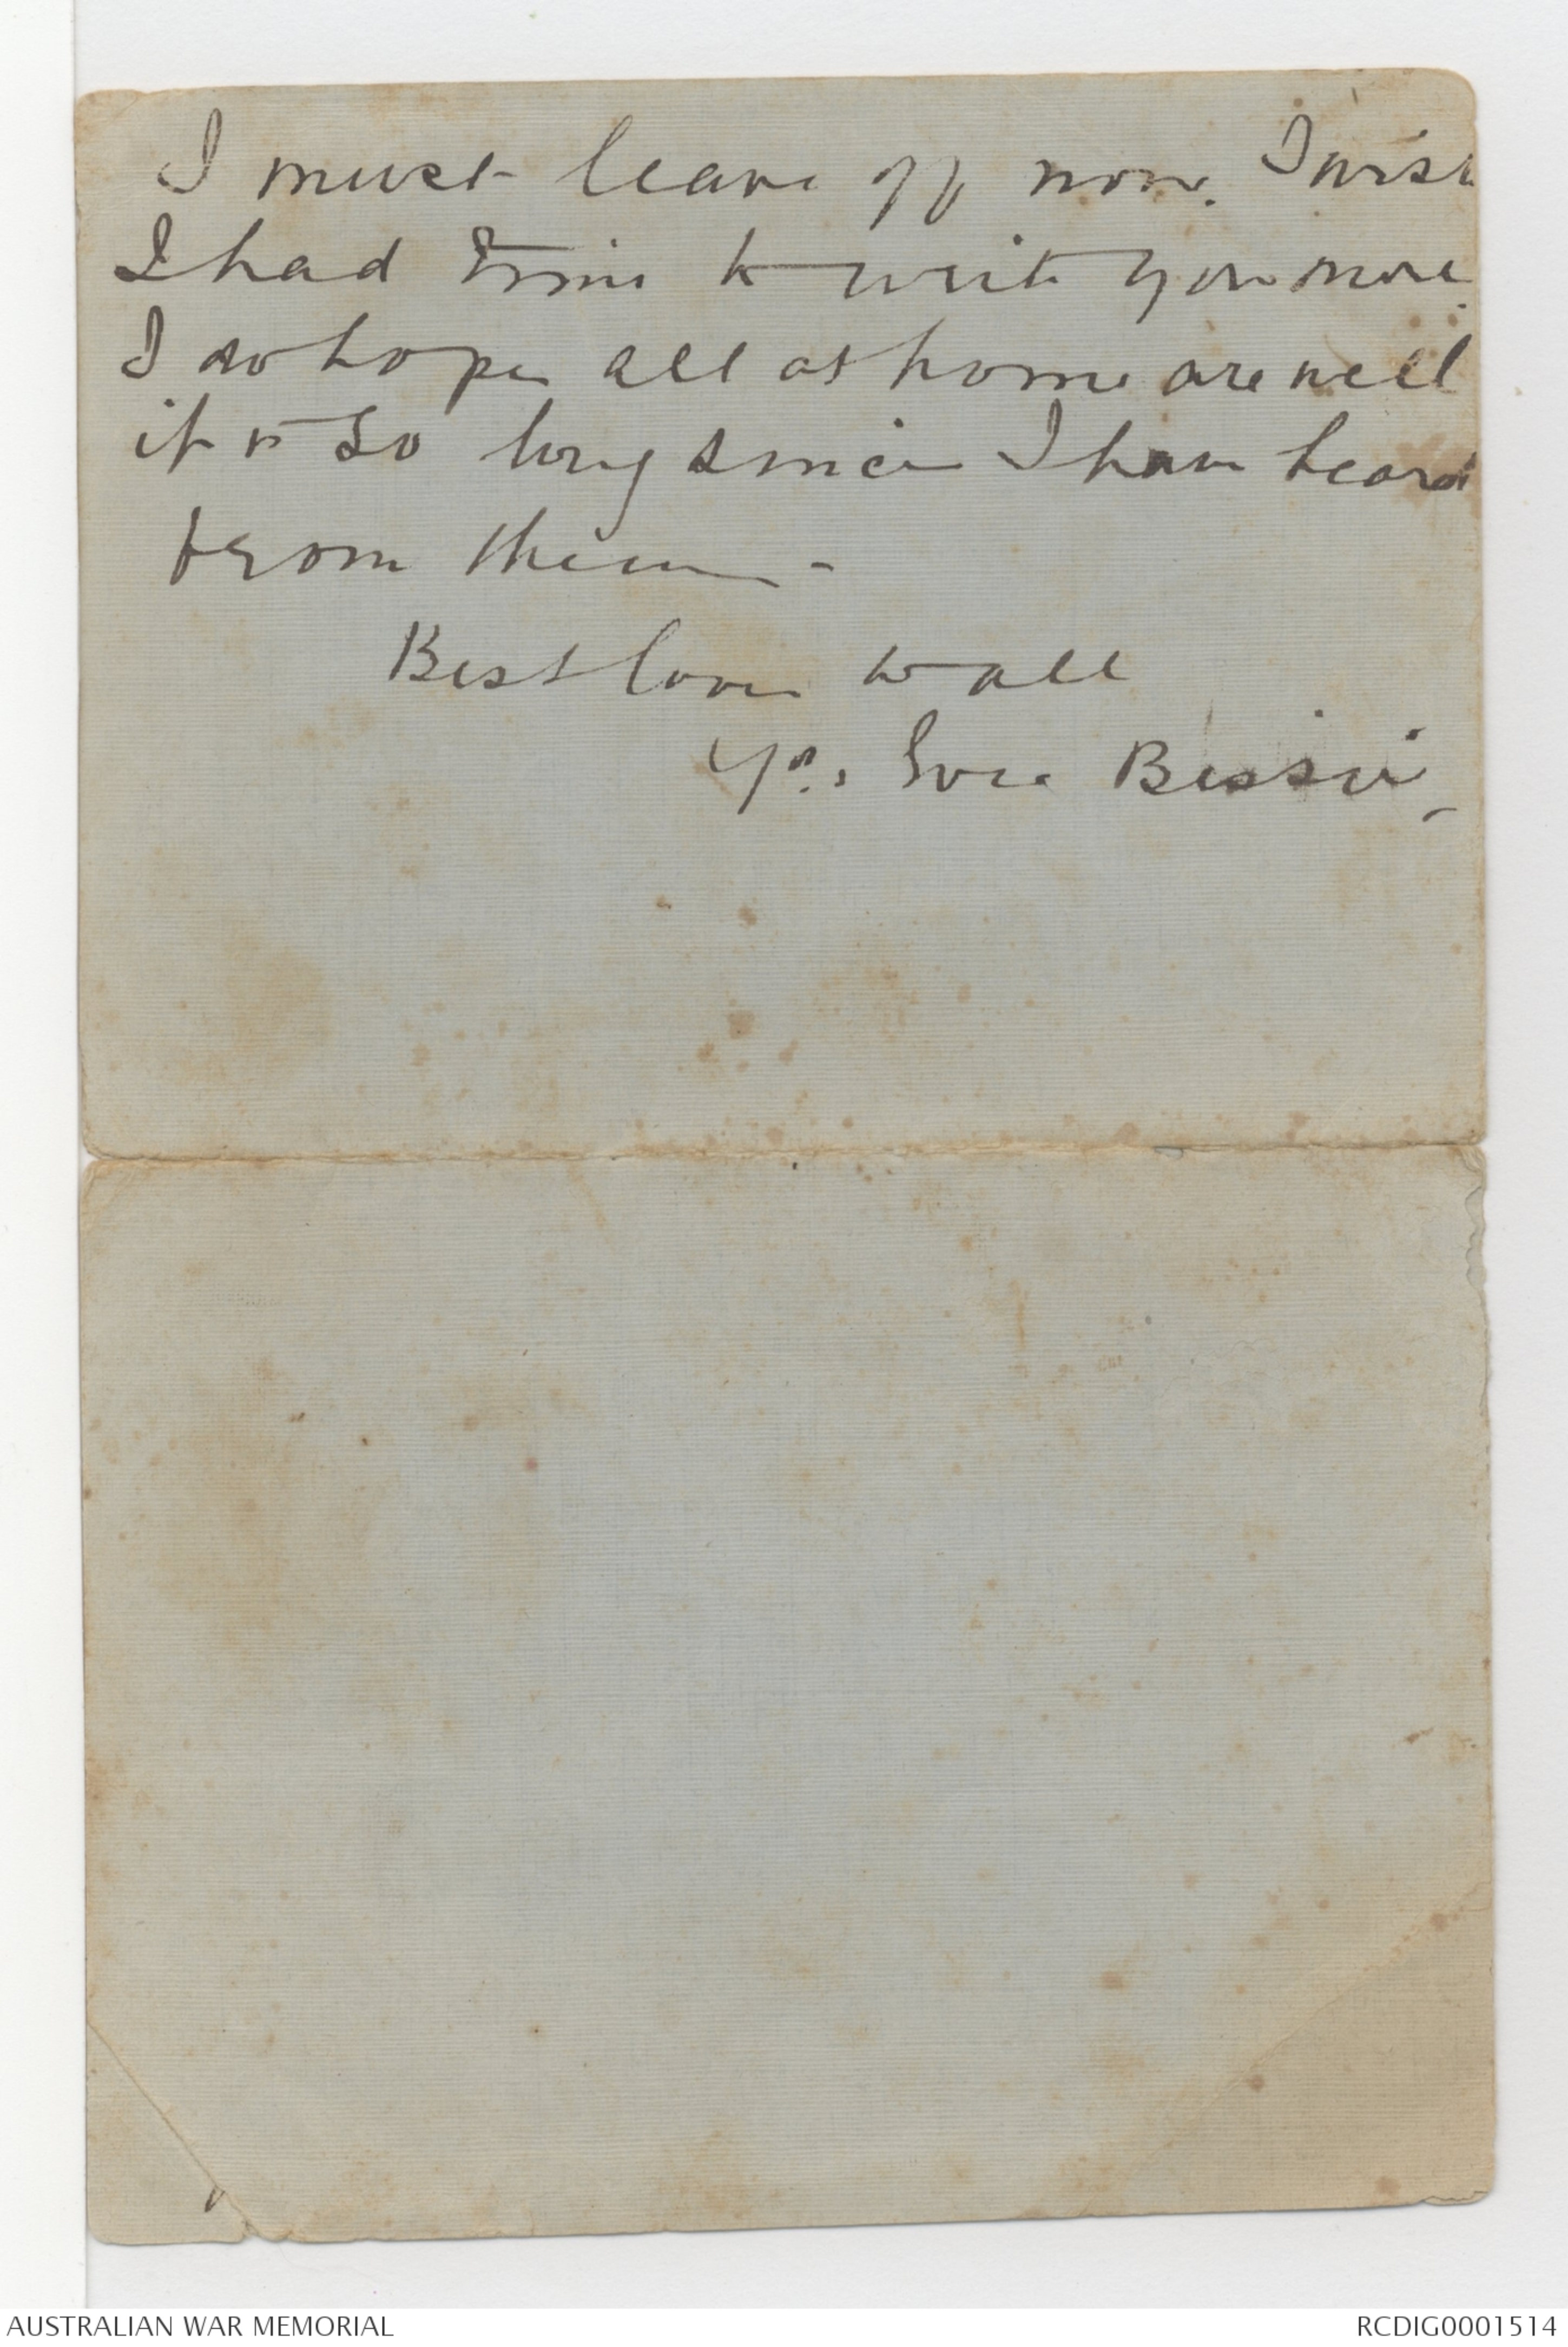 I must leave off now. I wish
I had time to write you more.
I do hope all at home are well
it is so long since I have heard
from them -
Best love to all
Yrs. Bessie
AUSTRALIAN WAR MEMORIAL
RCDIG0001514